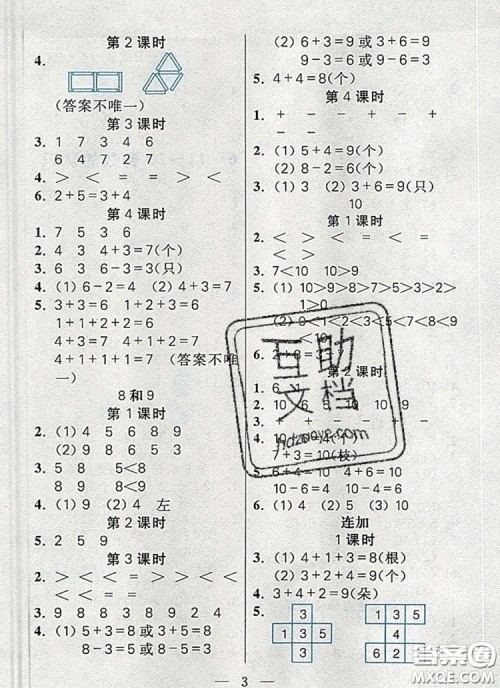 第2课时
4.
(答案不唯一)
第3课时
3. 1 7 3 4 6
6 4 7 2 7
4. > < = = > <
6. 2+5=3+4
第4课时
1. 7 5 3 6
2. 4 3 4+3=7(个)
3. 6 3 6-3=3(只)
4. (1) 6-2=4 (2) 4+3=7
5. 3+3=6 1+2+3=6
1+1+2+2=6
1+1+1+1+2=6
1+1+1+1+1+1=6 (答案不唯一)
8和9
第1课时
2. (1) 4 5 6 8 9
(2) 9 8 5 4 3
3. 5 8 5<8
8 5 8>5
4. (1) 9 (2) 4 左
第2课时
5. 2 5 9
第3课时
2. > < < = > < >
< = =
3. 9 8 8 8 3 8 9 2 4
4. (1) 5+3=8或3+5=8
8-3=5或8-5=3
(2) 6+3=9或3+6=9
9-3=6或9-6=3
5. 4+4=8(个)
第4课时
1. + - + - + -
- - +
2. (1) 5+4=9(个)
(2) 8-2=6(个)
3. (1) 3 (2) 3+6=9(只)
10
第1课时
2. = < < < < > <
< >
3. 7<10 10>9
5. (1) 10>9>8>7>5>3>2>
1>0
(2) 0<1<2<3<5<7<8<9
6. 2+8=3+7
第2课时
1. 6 1
2. 10 6 5 10 9
3. 10
4.
7+3=10(枝)
5. 8+2=10 4+6=10
10-6=4 10-5=5
6. (1) 5 (2) 4
连加
1课时
3. (1) 4+1+3=8(根)
(2) 3+4+2=9(个)
4. 3+2+4=9(朵)
5.
3
1 3 5
5
1 3 5
4
6 2
3
互助
文档
hdzuoye.com
答案圈